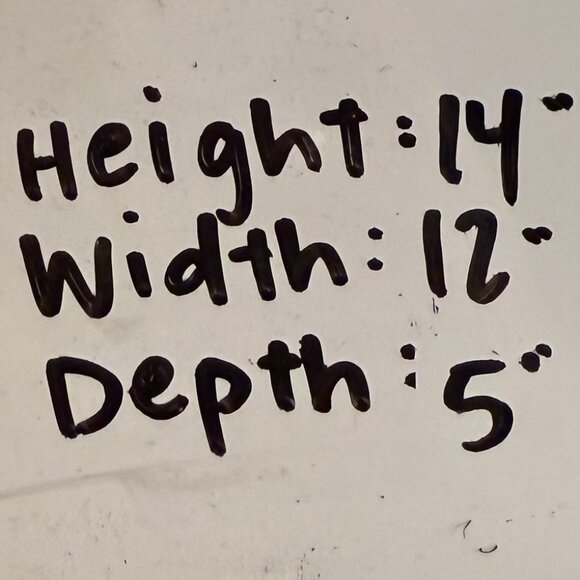 Height: 14"
Width: 12"
Depth: 5"